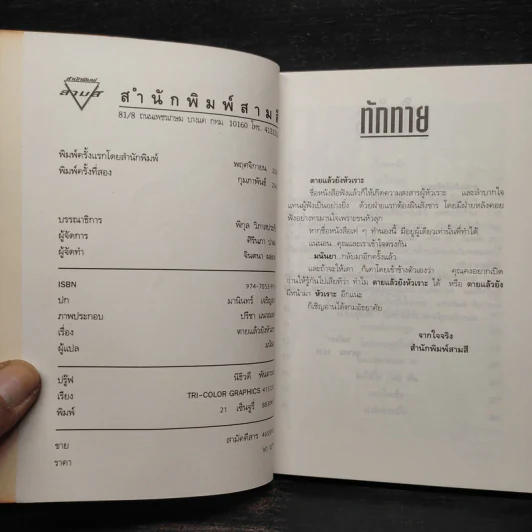 สำนักพิมพ์
สามสี
สำนักพิมพ์สามสี
81/8 ถนนเพชรเกษม บางแค กทม. 10160 โทร.
พิมพ์ครั้งแรกโดยสำนักพิมพ์ พฤศจิกายน
พิมพ์ครั้งที่สอง กุมภาพันธ์
บรรณาธิการ พิกุล
ผู้จัดการ ศิรินภา
ผู้จัดการ จินตนา
ISBN 974-7053-9
ปก มานินทร์ เจริญ
ภาพประกอบ ปรีชา
เรื่อง ตายแล้วยังหัวเราะ
ผู้แปล
ปรู๊ฟ นิธิวดี
เรียง TRI-COLOR GRAPHICS
พิมพ์ 21 เซ็นจูรี่
ขาย สามัคคีสาร
ราคา
ทักทาย
ตายแล้วยังหัวเราะ
ชื่อหนังสือฟังแล้วก็ให้เกิดความสงสารผู้หัวเราะ และลำบากใจ
แทนผู้ฟังเป็นอย่างยิ่ง ด้วยฝ่ายแรกต้องฝืนสังขาร โดยมีฝ่ายหลังคอย
ฟังอย่างทรมานใจเพราะขนหัวลุก
หากชื่อหนังสือเท่ ๆ ทำนองนี้ มีอยู่ผู้เดียวเท่านั้นที่ทำได้
แน่นอน คุณและเราเข้าใจตรงกัน
มนันยา...กลับมาอีกครั้งแล้ว
และถ้าจะให้เดา ก็เดาโดยเข้าข้างตัวเองว่า คุณคงอยากเปิด
อ่านให้รู้กันไปเสียทีว่า ทำไม ตายแล้วยังหัวเราะ ได้ หรือ ตายแล้วยัง
มีหน้ามา หัวเราะ อีกแน่ะ
ก็เชิญอ่านได้ตามอัธยาศัย
จากใจจริง
สำนักพิมพ์สามสี